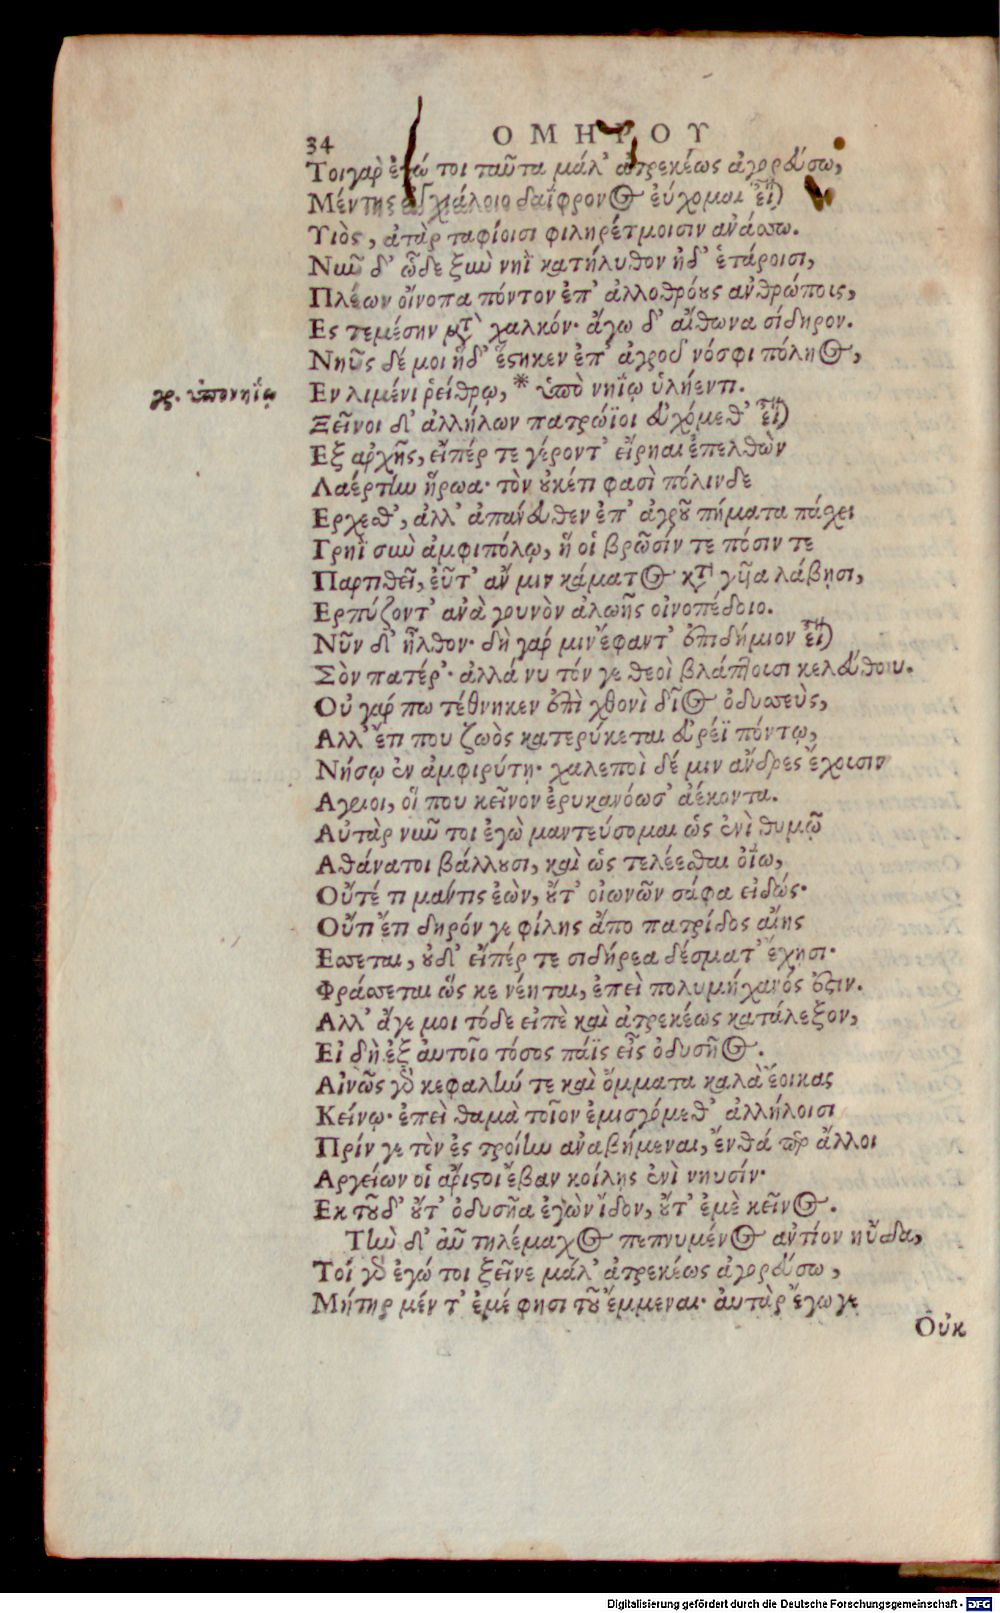 34 ΟΜΗΡΟΥ
Τοιγὰρ ἐγώ τοι ταῦτα μάλ' ἀτρεκέως ἀγορεύσω,
Μέντης ἀγχιάλοιο δαΐφρονος εὔχομαι εἶναι
Υιὸς, ἀτὰρ ταφίοισι φιληρέτμοισιν ἀνάσσω.
Νῦν δ' ὧδε ξὺν νηῒ κατήλυθον ἠδ' ἑτάροισι,
Πλέων οἴνοπα πόντον ἐπ' ἀλλοθρόους ἀνθρώποις,
Ες τεμέσην μετὰ χαλκόν· ἄγω δ' αἴθωνα σίδηρον.
Νηῦς δέ μοι ἥδ' ἕστηκεν ἐπ' ἀγροῦ νόσφι πόληος,
γρ. ὑπονηΐῳ
Εν λιμένι ῥείθρῳ, * ὑπὸ νηΐῳ ὑλήεντι.
Ξεῖνοι δ' ἀλλήλων πατρώϊοι εὐχόμεθ' εἶναι
Εξ ἀρχῆς, εἴπέρ τε γέροντ' εἴρηαι ἐπελθὼν
Λαέρτην ἥρωα· τὸν οὐκέτι φασὶ πόλινδε
Ερχεσθ', ἀλλ' ἀπάνευθεν ἐπ' ἀγροῦ πήματα πάσχει
Γρηῒ σὺν ἀμφιπόλῳ, ἥ οἱ βρῶσίν τε πόσιν τε
Παρτιθεῖ, εὖτ' ἄν μιν κάματος κατὰ γυῖα λάβῃσι,
Ερπύζοντ' ἀνὰ γουνὸν ἀλωῆς οἰνοπέδοιο.
Νῦν δ' ἦλθον· δὴ γάρ μιν ἔφαντ' ἐπιδήμιον εἶναι
Σὸν πατέρ'· ἀλλά νυ τόν γε θεοὶ βλάπτουσι κελεύθου.
Οὐ γάρ πω τέθνηκεν ἐπὶ χθονὶ δῖος ὀδυσσεὺς,
Αλλ' ἔτι που ζωὸς κατερύκεται εὐρέϊ πόντῳ,
Νήσῳ ἐν ἀμφιρύτῃ· χαλεποὶ δέ μιν ἄνδρες ἔχουσιν
Αγριοι, οἵ που κεῖνον ἐρυκανόωσ' ἀέκοντα.
Αὐτὰρ νῦν τοι ἐγὼ μαντεύσομαι ὡς ἐνὶ θυμῷ
Αθάνατοι βάλλουσι, καὶ ὡς τελέεσθαι ὀΐω,
Οὔτέ τι μάντις ἐὼν, οὔτ' οἰωνῶν σάφα εἰδώς·
Οὔτι ἔτι δηρόν γε φίλης ἄπο πατρίδος αἴης
Εσσεται, οὐδ' εἴπέρ τε σιδήρεα δέσματ' ἔχῃσι·
Φράσσεται ὥς κε νέηται, ἐπεὶ πολυμήχανός ἐστιν.
Αλλ' ἄγε μοι τόδε εἰπὲ καὶ ἀτρεκέως κατάλεξον,
Εἰ δὴ ἐξ αὐτοῖο τόσος πάϊς εἶς ὀδυσῆος.
Αἰνῶς γὰρ κεφαλήν τε καὶ ὄμματα καλὰ ἔοικας
Κείνῳ· ἐπεὶ θαμὰ τοῖον ἐμισγόμεθ' ἀλλήλοισι
Πρίν γε τὸν ἐς τροίην ἀναβήμεναι, ἔνθά περ ἄλλοι
Αργείων οἱ ἄριστοι ἔβαν κοίλῃς ἐνὶ νηυσίν·
Εκ τοῦδ' οὔτ' ὀδυσῆα ἐγὼν ἴδον, οὔτ' ἐμὲ κεῖνος.
Τὴν δ' αὖ τηλέμαχος πεπνυμένος ἀντίον ηὔδα,
Τοὶ γὰρ ἐγώ τοι ξεῖνε μάλ' ἀτρεκέως ἀγορεύσω,
Μήτηρ μέν τ' ἐμέ φησι τοῦ ἔμμεναι· αὐτὰρ ἔγωγε
Οὐκ
Digitalisierung gefördert durch die Deutsche Forschungsgemeinschaft - DFG